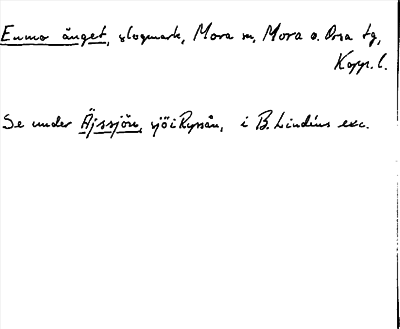 Enmo änget, slogmark, Mora sn, Mora o. Orsa tg,
Kopp. l.
Se under Äjssjön, sjö i Ryssån, i B. Lindéns exc.